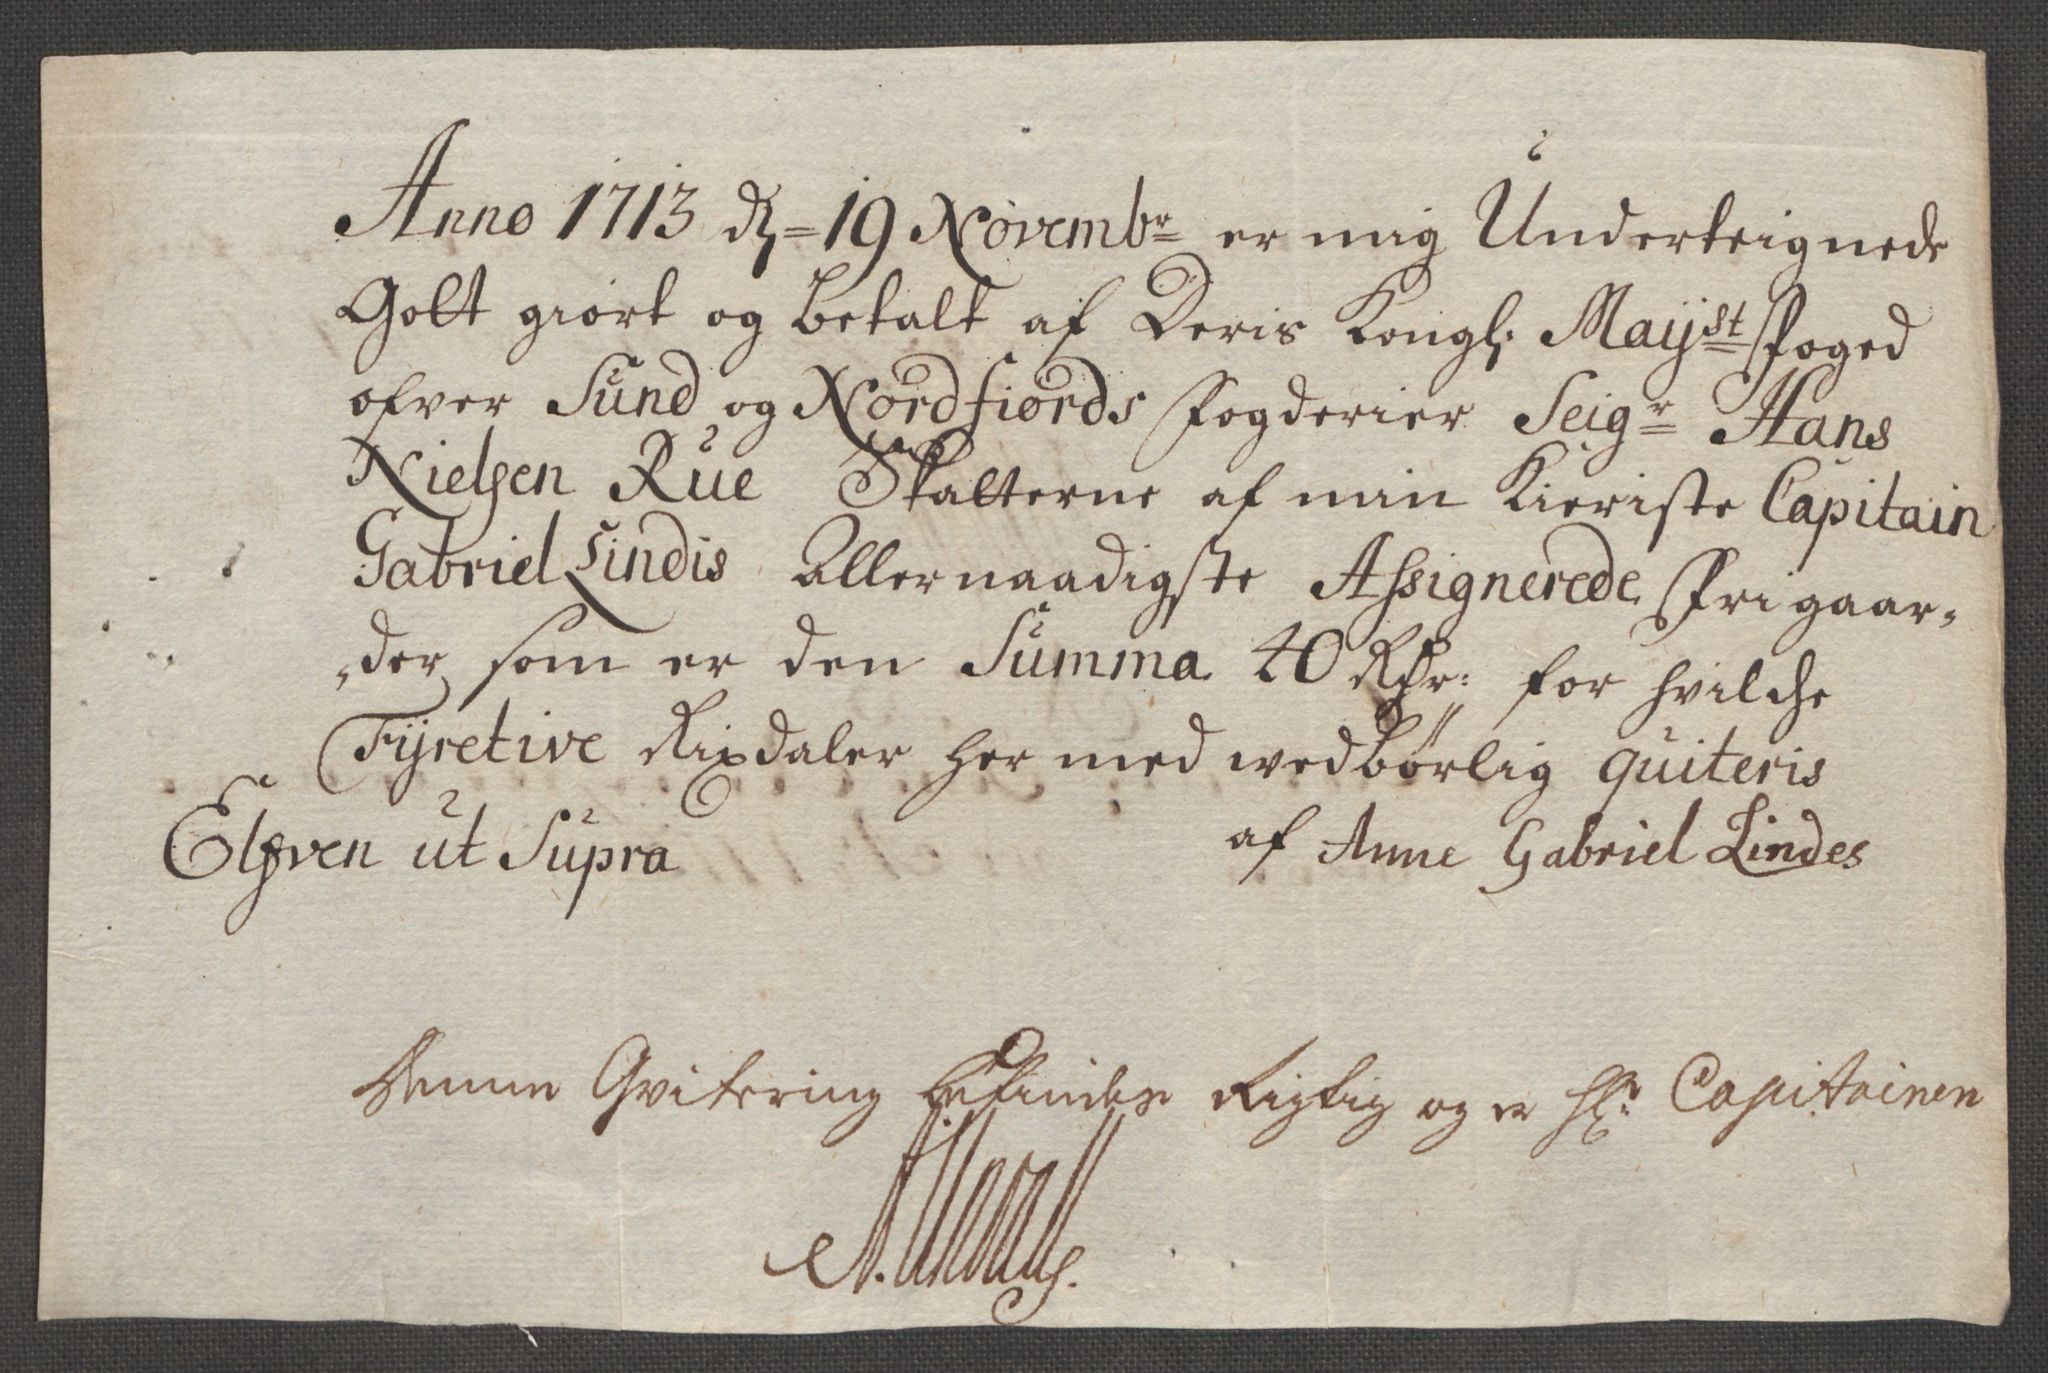 Anno 1713 d: = 19 Novembr er mig Underteignede
Gott giort og betalt af Deris Kongl: Mayst Foged
ofver Sund og Nordfiords Fogderier Seigr Hans
Nielsen Rue Skatterne af min Kieriste Capitain
Gabriel Lindis Allernaadigste Assignerede Frigaar-
der som er den Summa 40 Rdr: for hvilche
Fijretive Rixdaler her med wedbørlig quiteris
Elfven ut Supra af Anne Gabriel Lindes
Denne Qvitering befindes Rigtig og er Hr: Capitainen